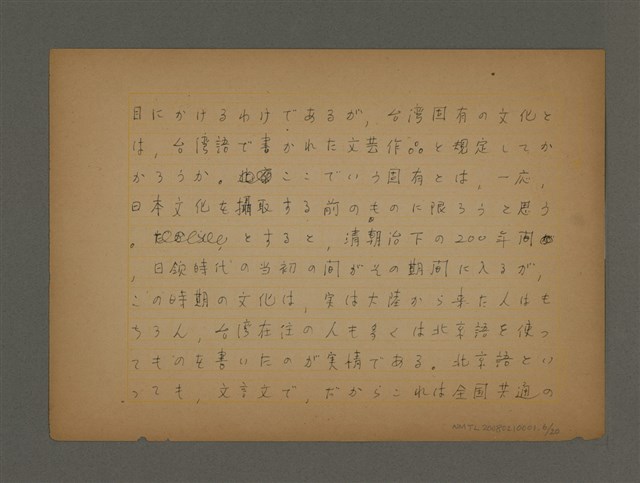 目にかけるわけであるが，台湾固有の文化と
は，台湾語で書かれた文芸作品と規定してか
かろうか。ここでいう固有とは，一応，
日本文化を摂取する前のものに限ろうと思う
。とすると，清朝治下の200年間
，日領時代の当初の間がその期間に入るが，
この時期の文化は，実は大陸から来た人はも
ちろん，台湾在住の人も多くは北京語を使っ
てものを書いたのが実情である。北京語とい
っても，文言文で，だからこれは全国共通の
NMTL20082210001.6/20